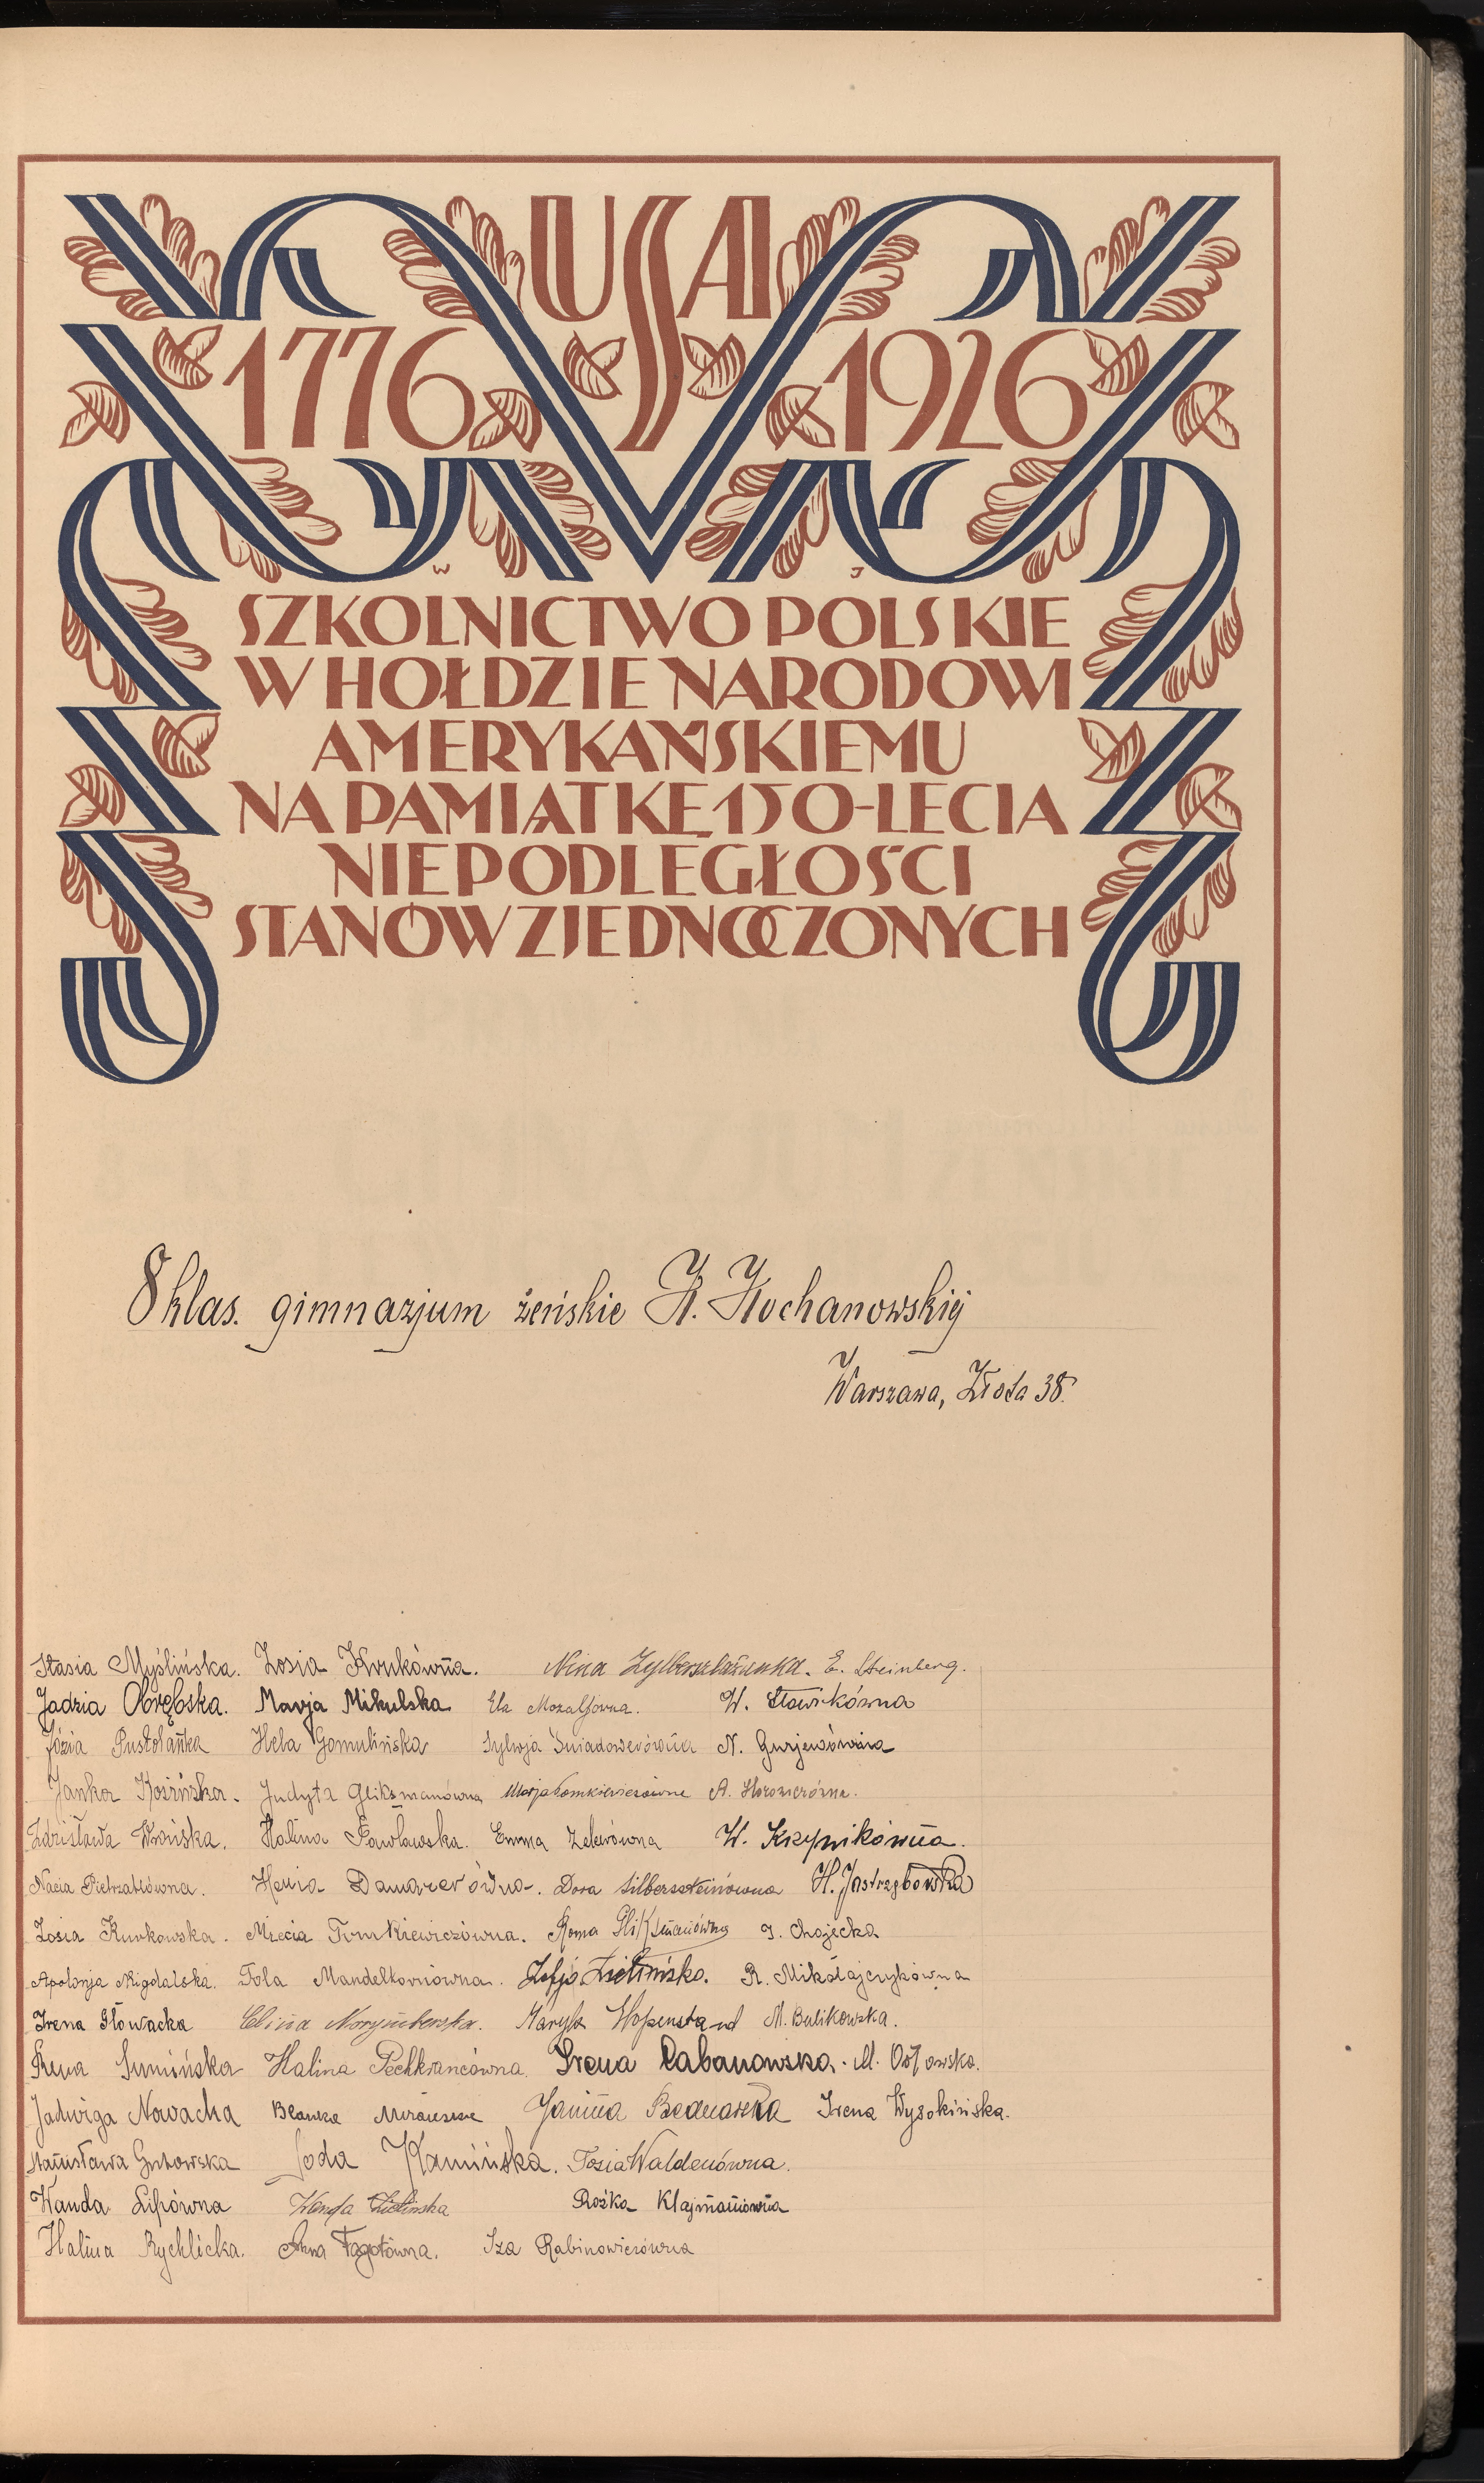 USA
1776 1926
W J
SZKOLNICTWO POLSKIE
W HOŁDZIE NARODOWI
AMERYKAŃSKIEMU
NA PAMIĄTKĘ 150-LECIA
NIEPODLEGŁOŚCI
STANÓW ZJEDNOCZONYCH
8 klas. gimnazjum żeńskie H. Kochanowskiej
Warszawa, Złota 38.
Stasia Myślińska. Zosia Krukówna. Nina E. Steinberg.
Jadzia Obrębska. Marja Mikulska Ela W. Sławikówna
Józia Pustołanka Hela Gomulińska Sylwja Świadowerówna N. Gurjewówna
Janka Kosińska. Judyta Gliksmanówna Marja Tomkiewiczówna A. Horowiczówna.
Zdzisława Wrońska. Halina Pawłowska. Emma W. Krzynikówna.
Nacia Pietrzakówna. Henia Damazerówna. Dora Silberszteinówna H. Jastrzębowska
Zosia Kurkowska. Miecia Tomkiewiczówna. Roma Gliksmanówna J. Chojecka
Apolonja Migdalska. Tola Mandelkornówna. Zofja Zielińska. R. Mikołajczykówna
Irena Głowacka Norymberska. Maryla Hopenstand M. Bulikowska.
Irena Sumińska Halina Pechkrancówna. Irena Łabanowska. M.
Jadwiga Nowacka Blanka Janina Bednarska Irena Wysokińska.
Stanisława Gutowska Loda Kamińska. Tosia Waldenówna.
Wanda Lipówna Wanda Zielińska Rózka Klajmanówna
Halina Rychlicka. Anna Fagotówna. Iza Rabinowiczówna